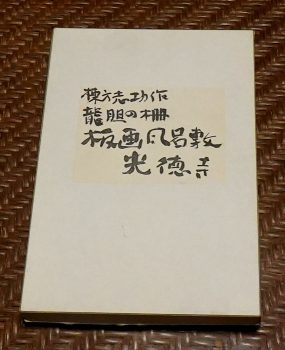 棟方志功作
龍胆の柵
板画風呂敷
光徳寺